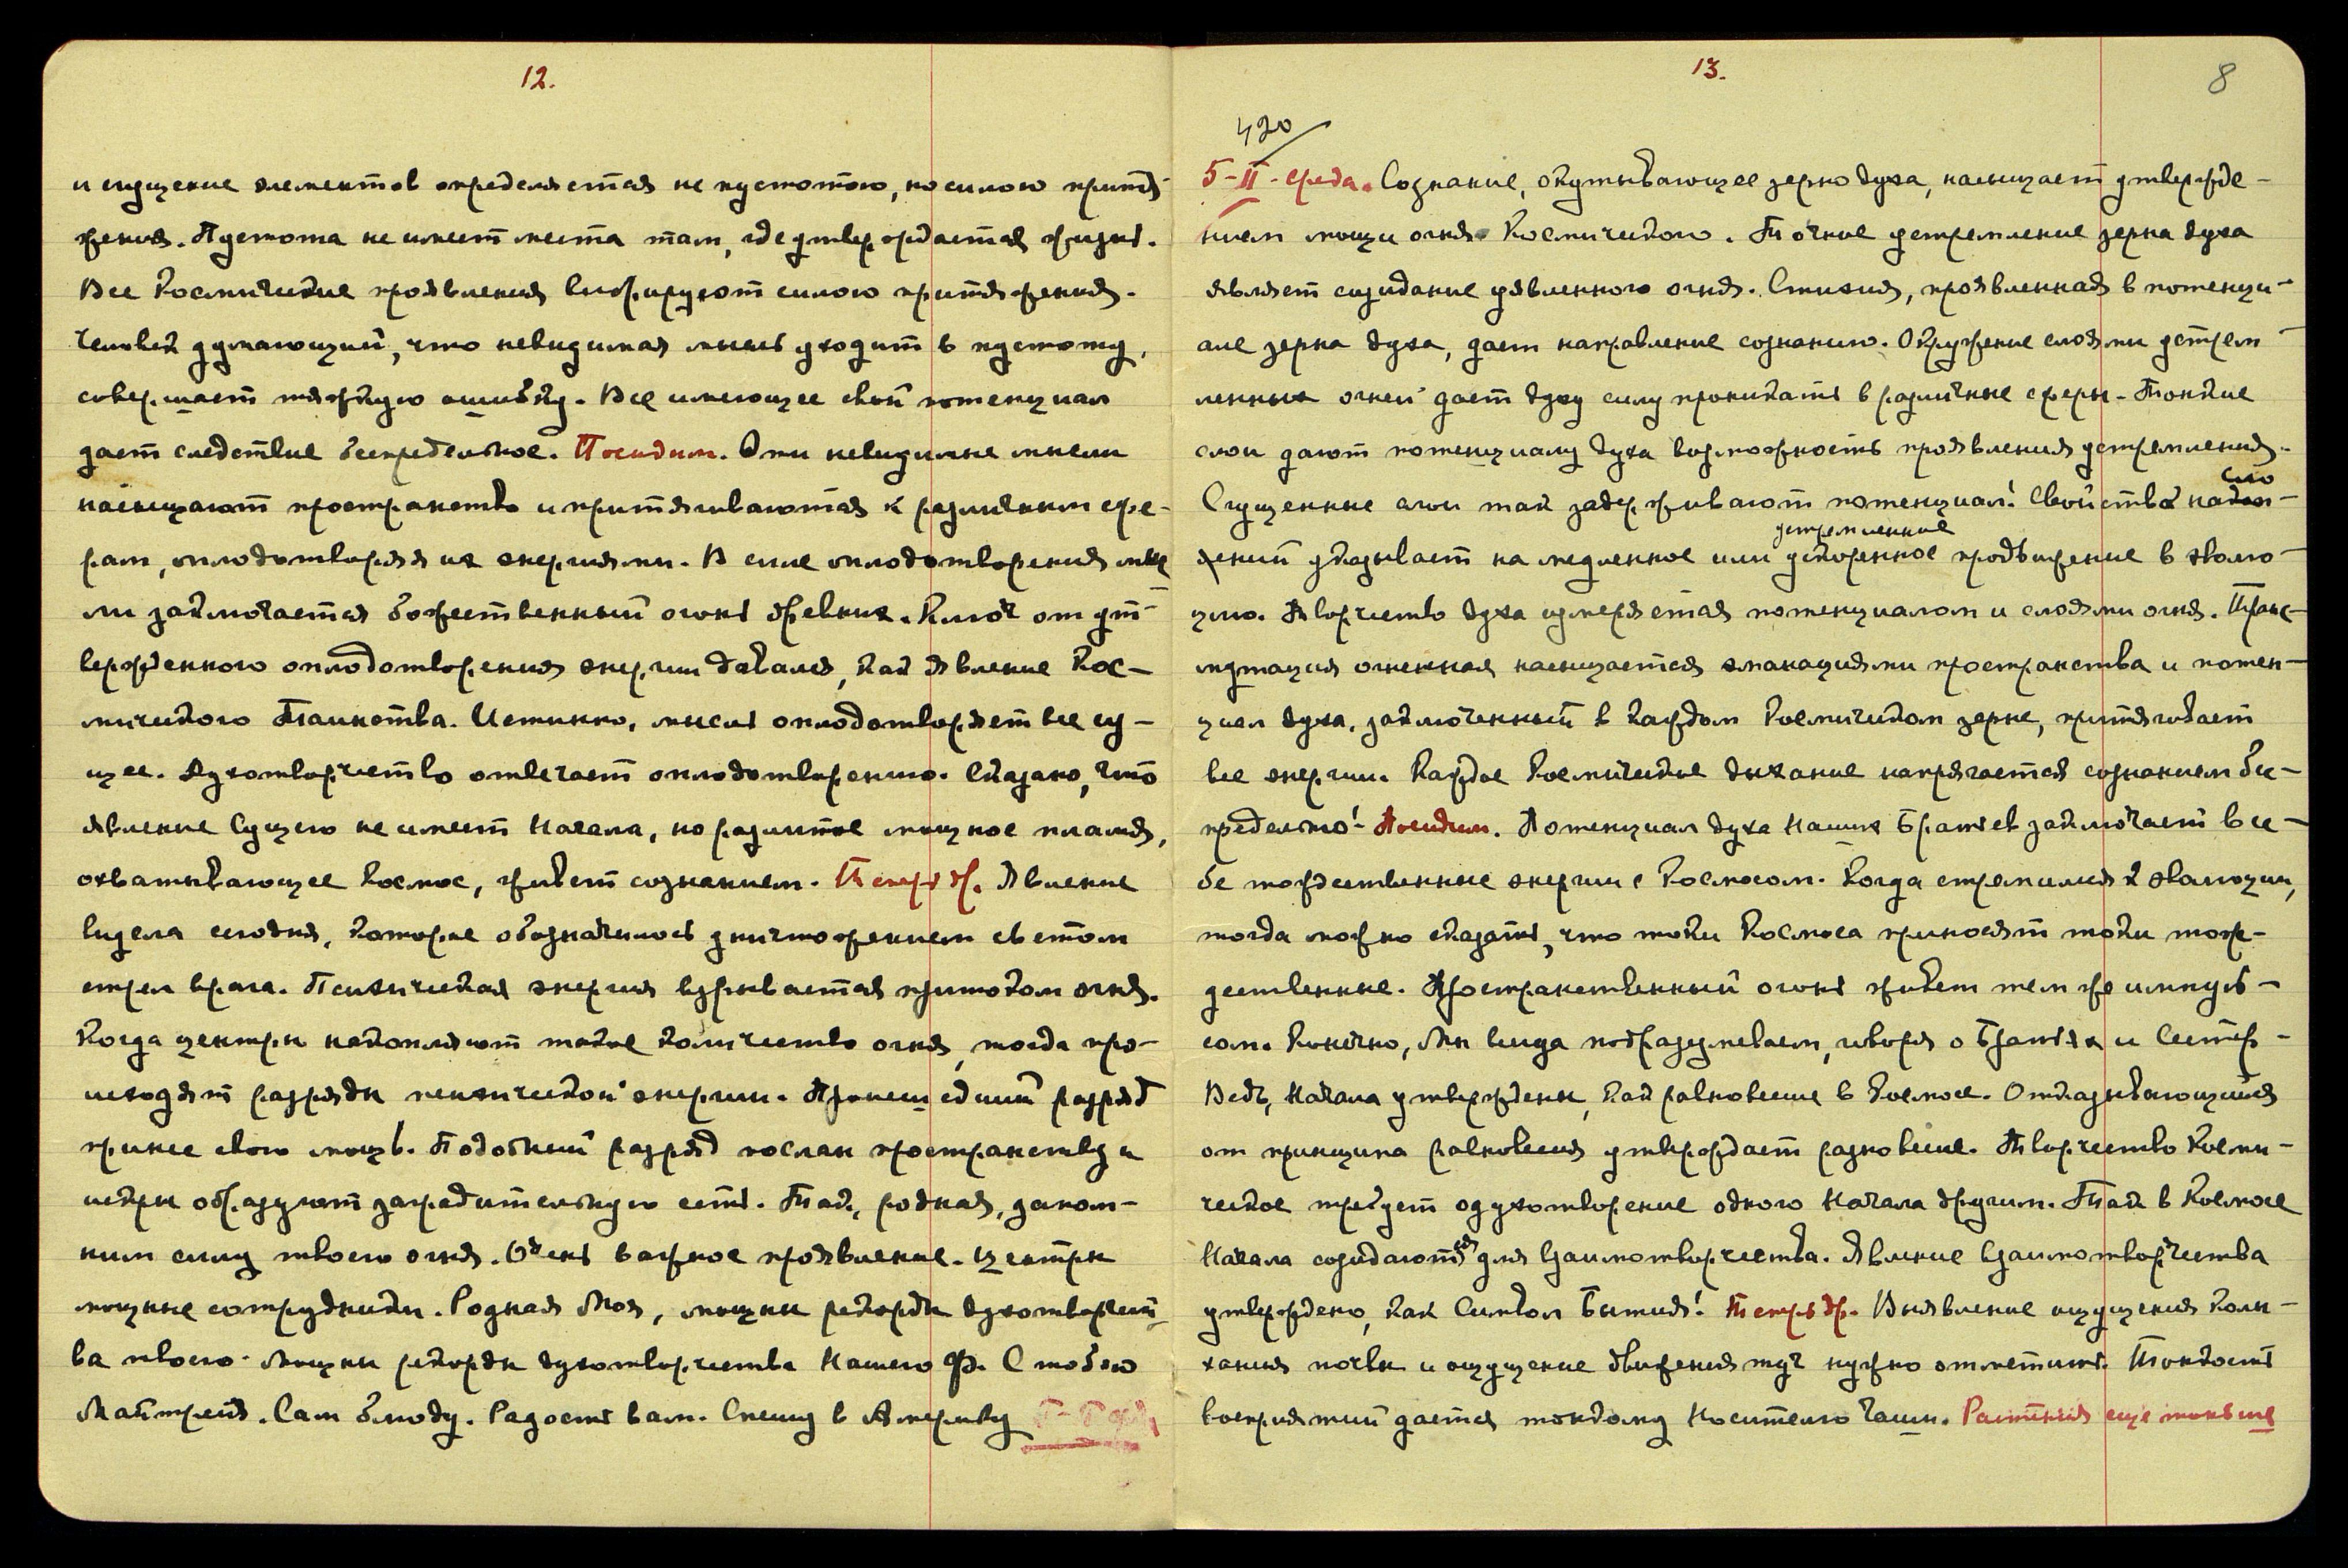 12.
и сгущение элементов определяется не пустотою, но силою притя-
жения. Пустота не имеет места там, где утверждается жизнь.
Все Космические проявления вибрируют силою притяжения.
Человек думающий, что невидимая мысль уходит в пустоту,
совершает тяжкую ошибку. Все имеющее свой потенциал
дает следствие беспредельное. Посидим. Эти невидимые мысли
насыщают пространство и притягиваются к различным сфе-
рам, оплодотворяя их энергиями. В силе оплодотворения мыс
ли заключается божественный огонь древних. Ключ от ут-
вержденного оплодотворения энергии давался, как явление Кос-
мического Таинства. Истинно, мысль оплодотворяет все су-
щее. Духотворчество отвечает оплодотворению. Сказано, что
явление Сущего не имеет Начала, но разлитое мощное пламя,
охватывающее Космос, живет сознанием. Теперь др. Явление
видела сегодня, которое обозначилось уничтожением светом
стрел врага. Психическая энергия взрывается притоком огня.
Когда центры накопляют такое количество огня, тогда про-
исходят разряды психической энергии. Происшедший разряд
принес свою мощь. Подобный разряд послан пространству и
искры образуют заградительную сеть. Так, родная, запом-
ним силу твоего огня. Очень важное проявление. Центры
мощные сотрудники. Родная Моя, мощны рекорды духотворчест
ва твоего. Мощны рекорды духотворчества Нашего Ф. С тобою
Майтрейя. Сам блюду. Радость вам. Спешу в Америку
13.
8
420
5-II-среда. Сознание, окутывающее зерно духа, насыщает утвержде-
нием мощи огня Космического. Точное устремление зерна духа
являет созидание уявленного огня. Стихия, проявленная в потенци-
але зерна духа, дает направление сознанию. Окружение слоями устрем-
ленных огней дает духу силу проникать в различные сферы. Тонкие
слои дают потенциалу духа возможность проявления устремления.
Сгущенные слои так задерживают потенциал! Свойства накоп-
устремленное
лений указывает на медленное или ускоренное продвижение в эволю-
цию. Творчество духа измеряется потенциалом и слоями огня. Транс-
мутация огненная насыщается эманациями пространства и потен-
циал духа, заключенный в каждом Космическом зерне, притягивает
все энергии. Каждое Космическое дыхание напрягается сознанием бес-
предельно! Посидим. Потенциал духа Наших Братьев заключает в се-
бе тождественные энергии с Космосом. Когда стремимся к эволюции,
тогда можно сказать, что токи Космоса приносят токи тож-
дественные. Пространственный огонь живет тем же импуль-
сом. Конечно, Мы всегда подразумеваем, говоря о Братьях и Сестер.
Ведь, Начала утверждены, как равновесие в Космосе. Отказывающийся
от принципа равновесия утверждает разновесие. Творчество Косми-
ческое требует одухотворение одного Начала другим. Так в Космосе
Начала созидаются для взаимотворчества. Явление взаимотворчества
утверждено, как Символ Бытия! Теперь др. Выявление ощущения колы-
хания почвы и ощущение движения туч нужно отметить. Тонкость
восприятий дается тонкому Носителю Чаши. Растения еще тоньше